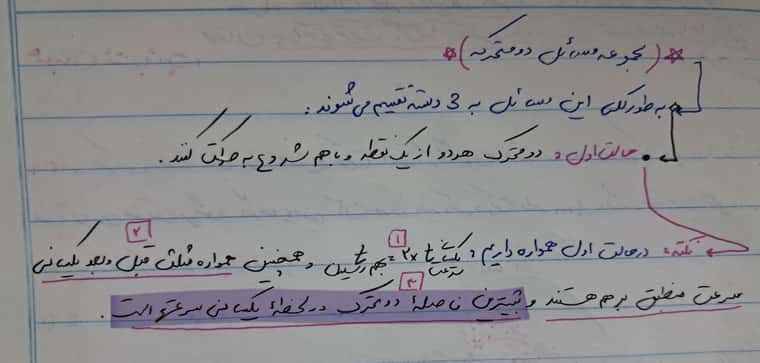 * (مجموعه مسائل دو متحرکه) *
به طور کلی این مسائل به 3 دسته تقسیم می‌شوند:
حالت اول: دو متحرک هر دو از یک نقطه و با هم شروع به حرکت کنند.
نکته: در حالت اول همواره داریم: t یکسانی سرعت × ۲ = t بهم رسیدن ۱ و همچنین همواره مثلث قبل و بعد یکسانی ۲
سرعت منطبق بر هم هستند و بیشترین فاصلهٔ دو متحرک در لحظهٔ یکسانی سرعتهاست. ۳